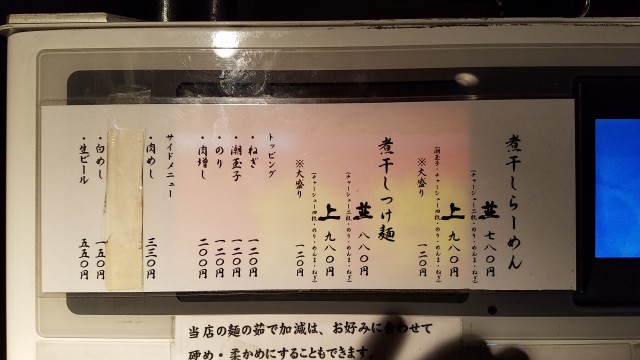 煮干しらーめん
並 七八〇円
(チャーシュー二枚・のり・めんま・ねぎ)
上 九八〇円
(潮玉子・チャーシュー四枚・のり・めんま・ねぎ)
※大盛り 一二〇円
煮干しつけ麺
並 八八〇円
(チャーシュー二枚・のり・めんま・ねぎ)
上 九八〇円
(チャーシュー四枚・のり・めんま・ねぎ)
※大盛り 一二〇円
トッピング
・ねぎ 一二〇円
・潮玉子 一二〇円
・のり 一二〇円
・肉増し 二〇〇円
サイドメニュー
・肉めし 三三〇円
・白めし 一五〇円
・生ビール 五五〇円
当店の麺の茹で加減は、お好みに合わせて
硬め・柔かめにすることもできます。